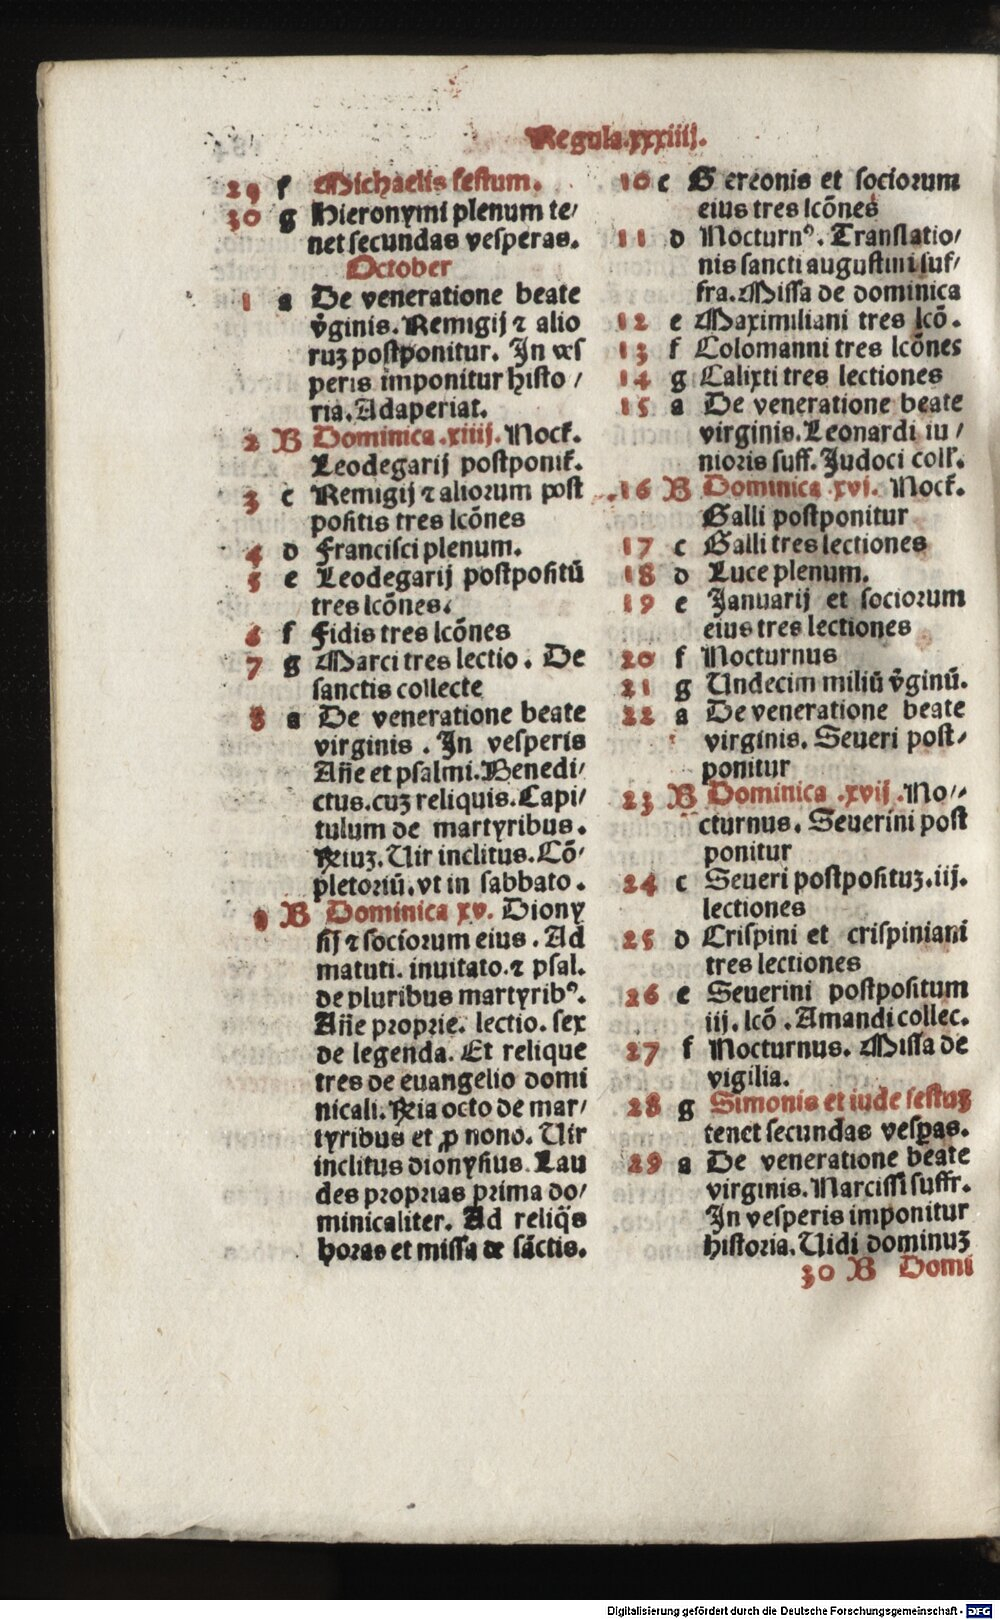 Regula.xxxiiij.
29 f Michaelis festum.
30 g Hieronymi plenum te/
net secundas vesperas.
October
1 a De veneratione beate
v̓ginis. Remigij ⁊ alio
ruꝫ postponitur. In ves
peris imponitur histo /
ria. Adaperiat.
2 B Dominica .xiiij. Noct̉.
Leodegarij postponit̉.
3 c Remigij ⁊ aliorum post
positis tres lcões
4 d Francisci plenum.
5 e Leodegarij postpositū
tres lcões.
6 f Fidis tres lcões
7 g Marci tres lectio. De
sanctis collecte
8 a De veneratione beate
virginis . In vesperis
Añe et psalmi. Benedi/
ctus. cuꝫ reliquis. Capi/
tulum de martyribus.
R̃iuꝫ. Uir inclitus. Cō/
pletoriū. vt in sabbato.
9 B Dominica xv. Diony
sij ⁊ sociorum eius. Ad
matuti. inuitato. ⁊ psal.
de pluribus martyribꝰ.
Añe proprie. lectio. sex
de legenda. Et relique
tres de euangelio domi
nicali. R̃ia octo de mar/
tyribus et ꝓ nono. Uir
inclitus dionysius. Lau
des proprias prima do/
minicaliter. Ad reliq̄s
horas et missa de sāctis.
10 c Gereonis et sociorum
eius tres lcões
11 d Nocturnꝰ. Translatio/
nis sancti augustini suf/
fra. Missa de dominica
12 e Maximiliani tres lcō.
13 f Colomanni tres lcões
14 g Calixti tres lectiones
15 a De veneratione beate
virginis. Leonardi iu /
nioris suff. Judoci coll̉.
16 B Dominica xvj. Noct̉.
Galli postponitur
17 c Galli tres lectiones
18 d Luce plenum.
19 e Januarij et sociorum
eius tres lectiones
20 f Nocturnus
21 g Undecim miliū v̓ginū.
22 a De veneratione beate
virginis. Seueri post/
ponitur
23 B Dominica .xvij. No/
cturnus. Seuerini post
ponitur
24 c Seueri postposituꝫ. iij.
lectiones
25 d Crispini et crispiniani
tres lectiones
26 e Seuerini postpositum
iij. lcō . Amandi collec.
27 f Nocturnus. Missa de
vigilia.
28 g Simonis et iude festuꝫ
tenet secundas vesꝑas.
29 a De veneratione beate
virginis. Narcissi suffr.
In vesperis imponitur
historia. Uidi dominuꝫ
30 B Domi
Digitalisierung gefördert durch die Deutsche Forschungsgemeinschaft - DFG